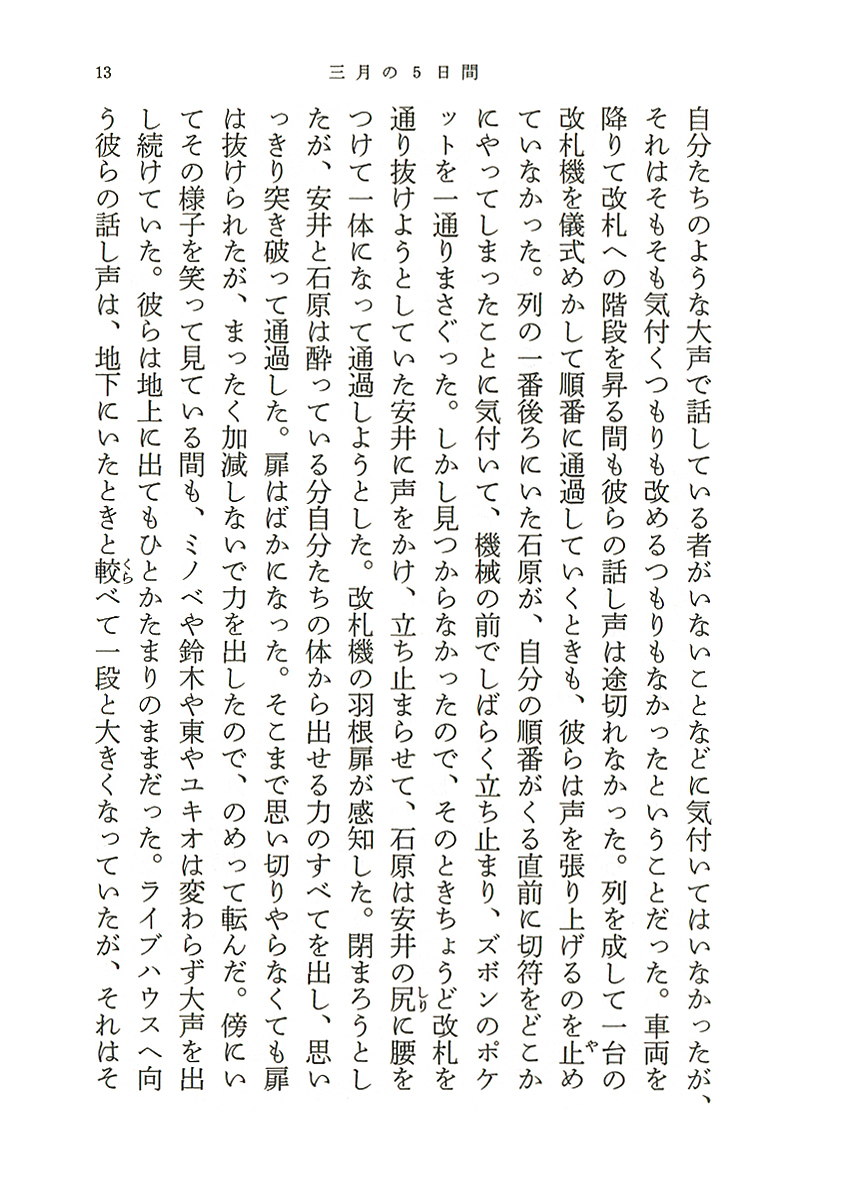 13
三月の5日間
自分たちのような大声で話している者がいないことなどに気付いてはいなかったが、
それはそもそも気付くつもりも改めるつもりもなかったということだった。車両を
降りて改札への階段を昇る間も彼らの話し声は途切れなかった。列を成して一台の
改札機を儀式めかして順番に通過していくときも、彼らは声を張り上げるのを止め
ていなかった。列の一番後ろにいた石原が、自分の順番がくる直前に切符をどこか
にやってしまったことに気付いて、機械の前でしばらく立ち止まり、ズボンのポケ
ットを一通りまさぐった。しかし見つからなかったので、そのときちょうど改札を
通り抜けようとしていた安井に声をかけ、立ち止まらせて、石原は安井の尻に腰を
つけて一体になって通過しようとした。改札機の羽根扉が感知した。閉まろうとし
たが、安井と石原は酔っている分自分たちの体から出せる力のすべてを出し、思い
っきり突き破って通過した。扉はばかになった。そこまで思い切りやらなくても扉
は抜けられたが、まったく加減しないで力を出したので、のめって転んだ。傍にい
てその様子を笑って見ている間も、ミノベや鈴木や東やユキオは変わらず大声を出
し続けていた。彼らは地上に出てもひとかたまりのままだった。ライブハウスへ向
う彼らの話し声は、地下にいたときと較べて一段と大きくなっていたが、それはそ
や
しり
くら